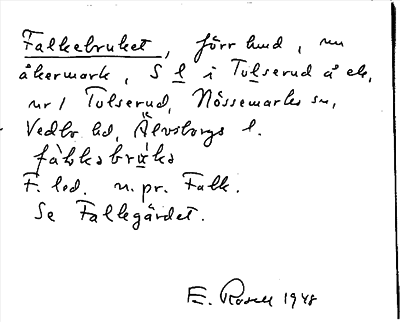 Falkebruket, förr lund, nu
åkermark, S l i Tolserud å ek.
nr 1 Tolserud, Nössemarks sn,
Vedbo hd, Älvsborgs l.
F. led. n. pr. Falk.
Se Falkegärdet.
E. Rosell 1948